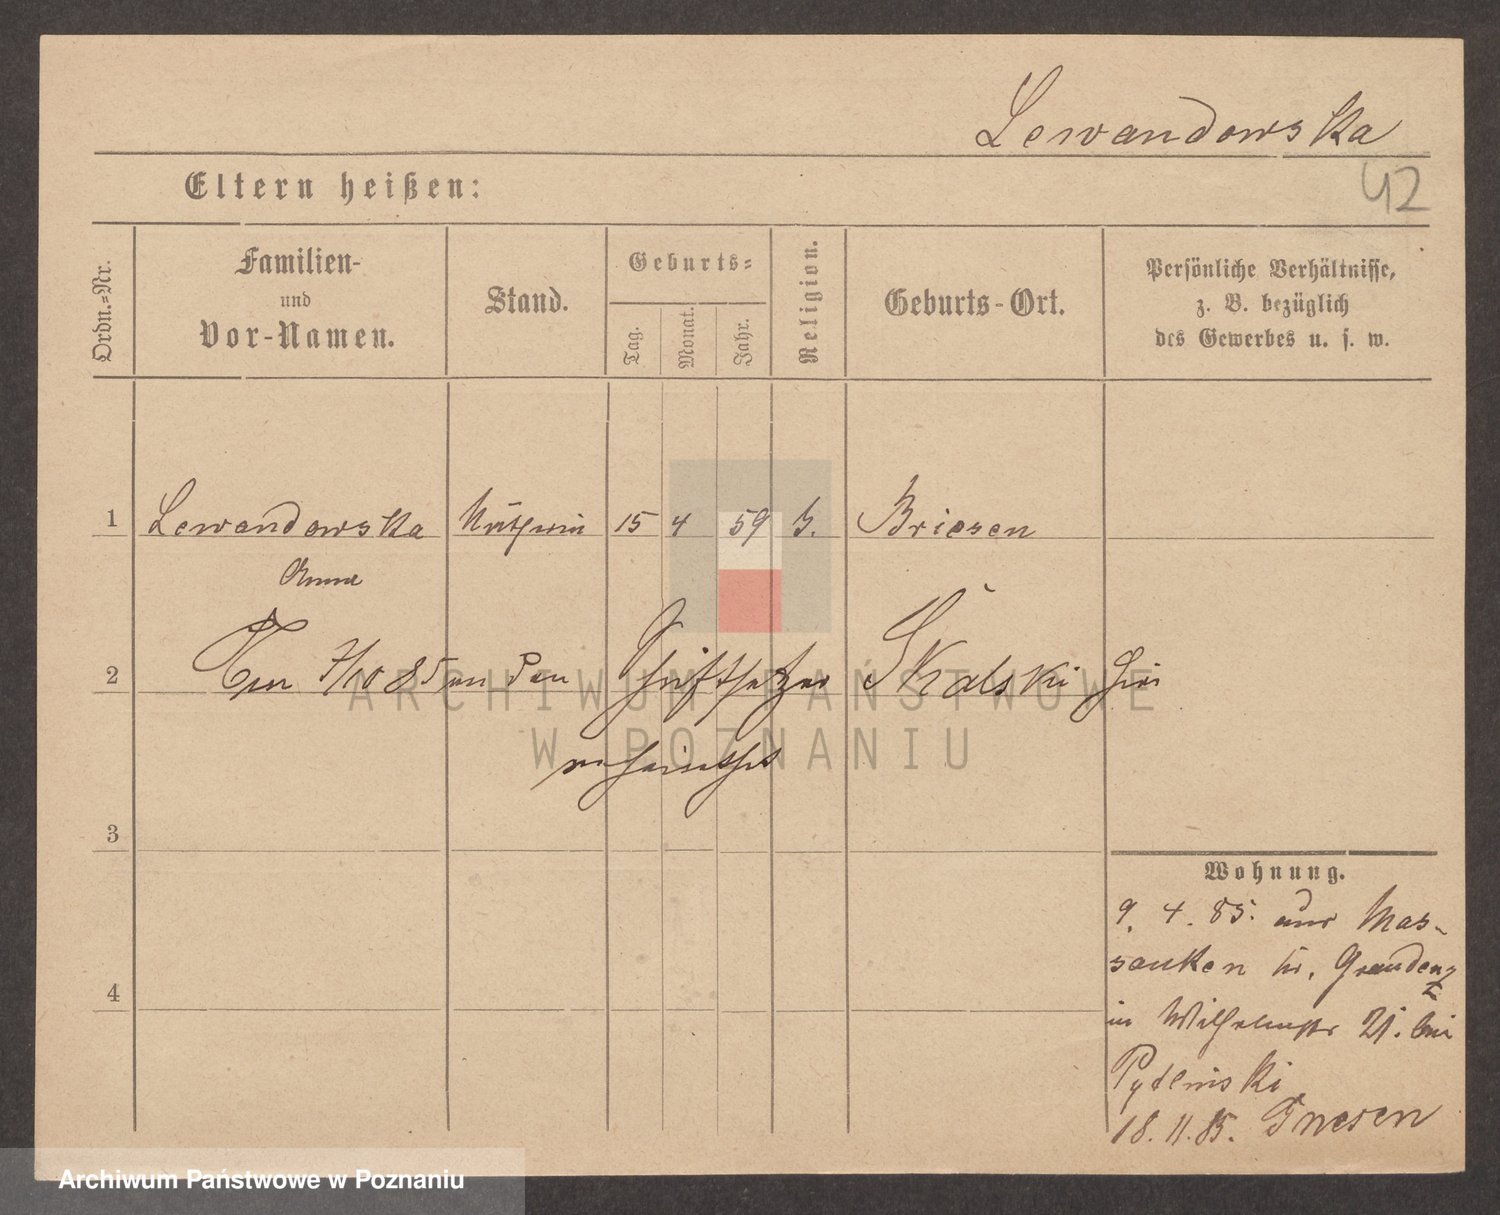 Lewandowska
42
Eltern heißen:
Ordn.=Nr.
Familien-
und
Vor-Namen.
Stand.
Geburts=
Tag.
Monat.
Jahr.
Religion.
Geburts-Ort.
Persönliche Verhältnisse,
z. B. bezüglich
des Gewerbes u. s. w.
1 Lewandowska 15 4 59 Briesen
Anna
2 7/10 85 an den Schriftsetzer Skalski hier
verheirathet
3
4
Wohnung.
9. 4. 85. aus Mas-
sanken Kr. Graudenz
in Wilhelmstr 21. bei
18. 11. 85. Gnesen
ARCHIWUM PAŃSTWOWE
W POZNANIU
Archiwum Państwowe w Poznaniu